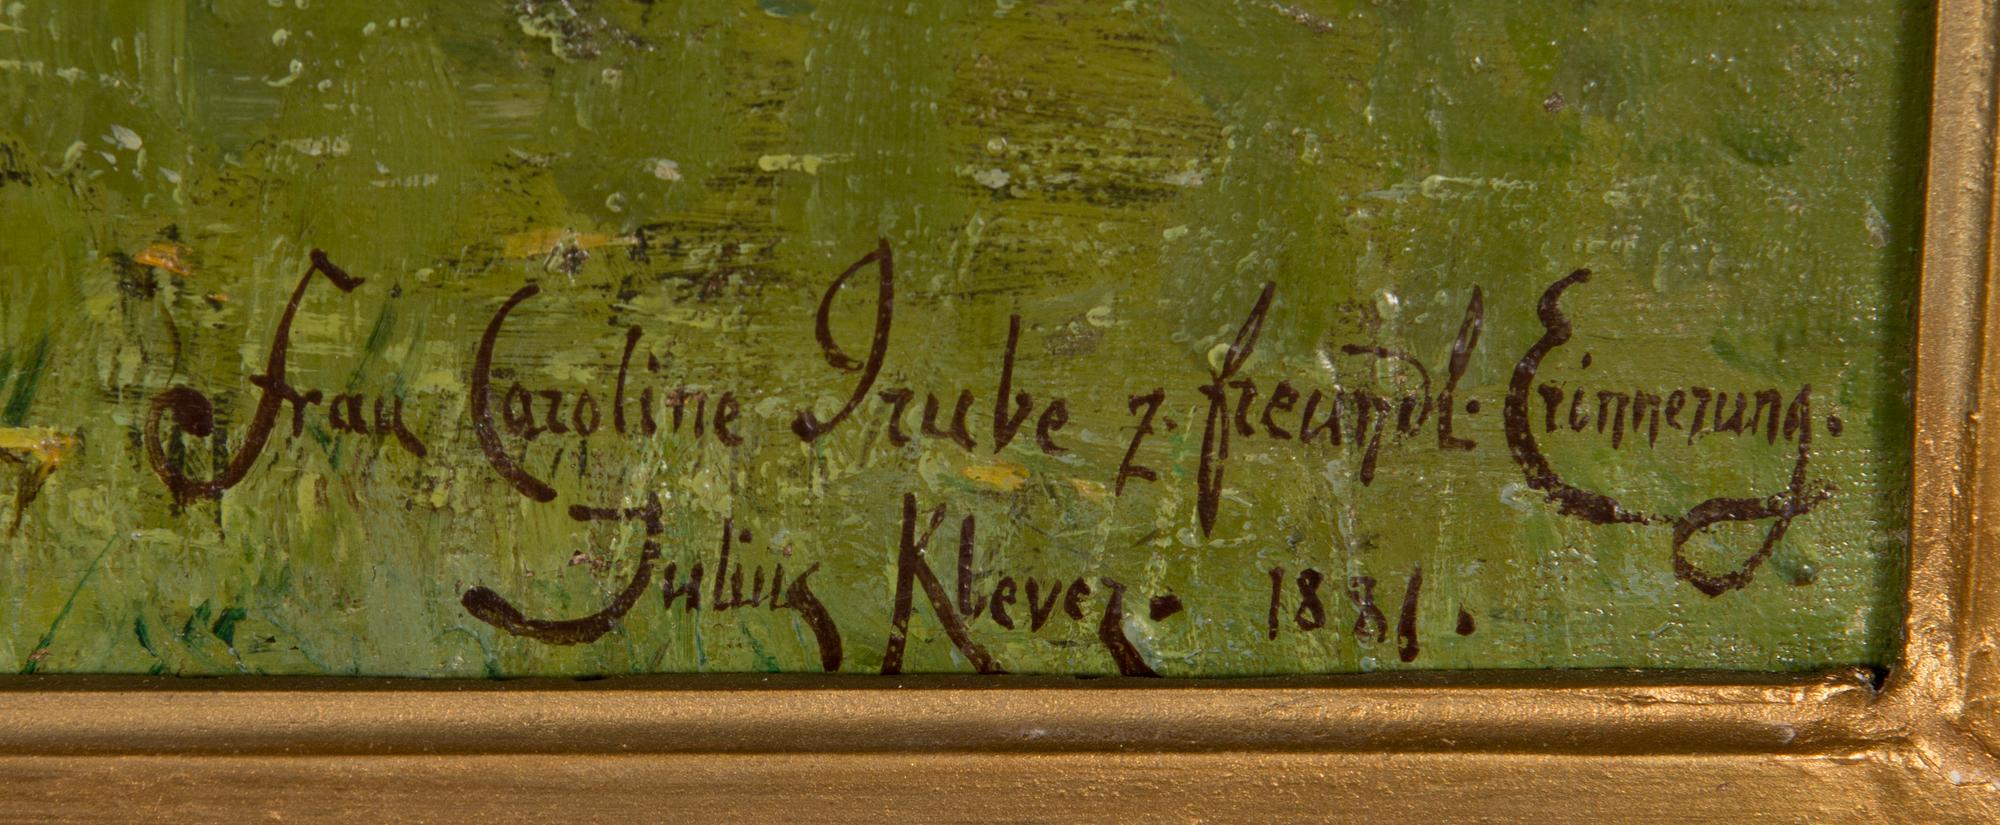 Frau Caroline Grube z. freundl. Erinnerung.
Julius Klever. 1881.